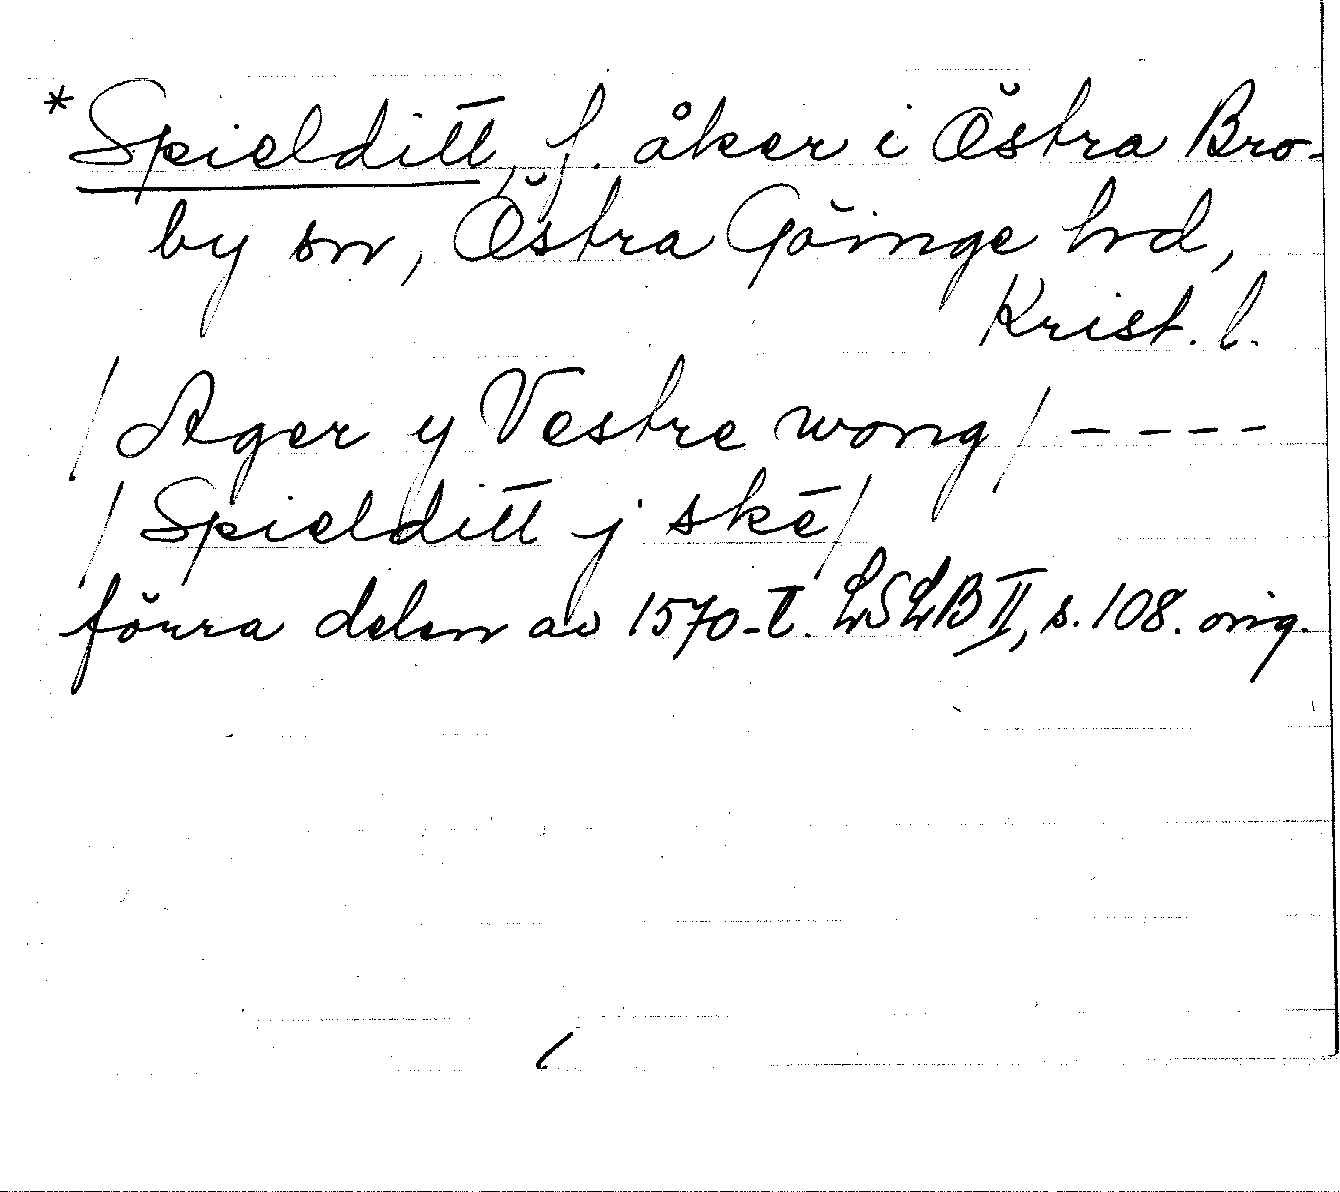 *Spielditt, f. åker i Östra Bro-
by sn, Östra Göinge hd,
Krist. l.
/Ager y Vestre wong/ ----
/Spielditt j skē/
förra delen av 1570-t. LSLB II, s. 108. orig.